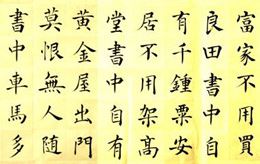 富家不用買
良田書中自
有千鍾粟安
居不用架高
堂書中自有
黃金屋出門
莫恨無人隨
書中車馬多